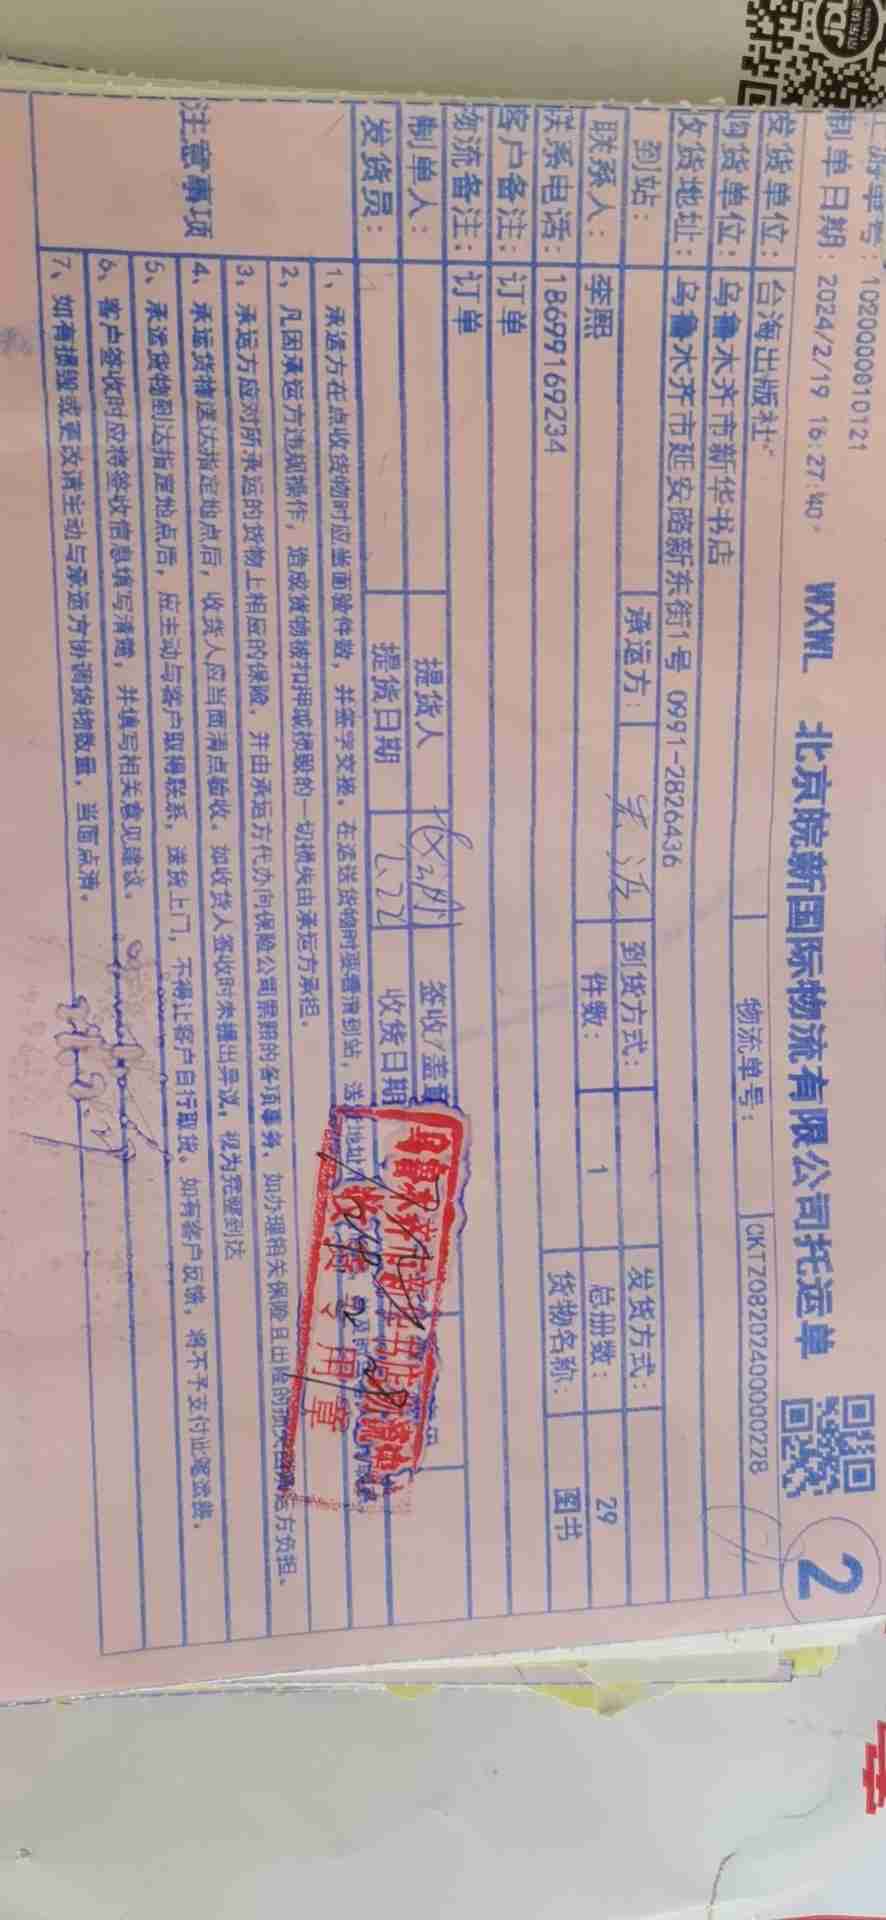 1020000010121
制单日期：2024/2/19 16:27:40
WXWL 北京皖新国际物流有限公司托运单
2
发货单位：台海出版社
物流单号：CKTZ0820240000228
购货单位：乌鲁木齐市新华书店
收货地址：乌鲁木齐市延安路新东街1号 0991-2826436
到站： 承运方： 到货方式： 发货方式：
联系人：李熙 件数：1 总册数：29
联系电话：18699169234 货物名称：图书
客户备注：订单
物流备注：订单
制单人： 提货人 签收/盖章
发货员： 提货日期 2.22 收货日期
收货专用章
注意事项
1、承运方在点收货物时应当面验件数，并签字交接。在运送货物时要看清到站，送
2、凡因承运方违规操作，造成货物被扣押或损毁的一切损失由承运方承担。
3、承运方应对所承运的货物上相应的保险，并由承运方代办向保险公司索赔的各项事务。如办理相关保险且出险的损失由承运方负担。
4、承运货物送达指定地点后，收货人应当面清点验收。如收货人签收时未提出异议，视为完整到达
5、承运货物到达指定地点后，应主动与客户取得联系，送货上门，不得让客户自行取货。如有客户反馈，将不予支付此笔运费。
6、客户签收时应将签收信息填写清楚，并填写相关意见建议。
7、如有损毁或更改请主动与承运方协调货物数量，当面点清。